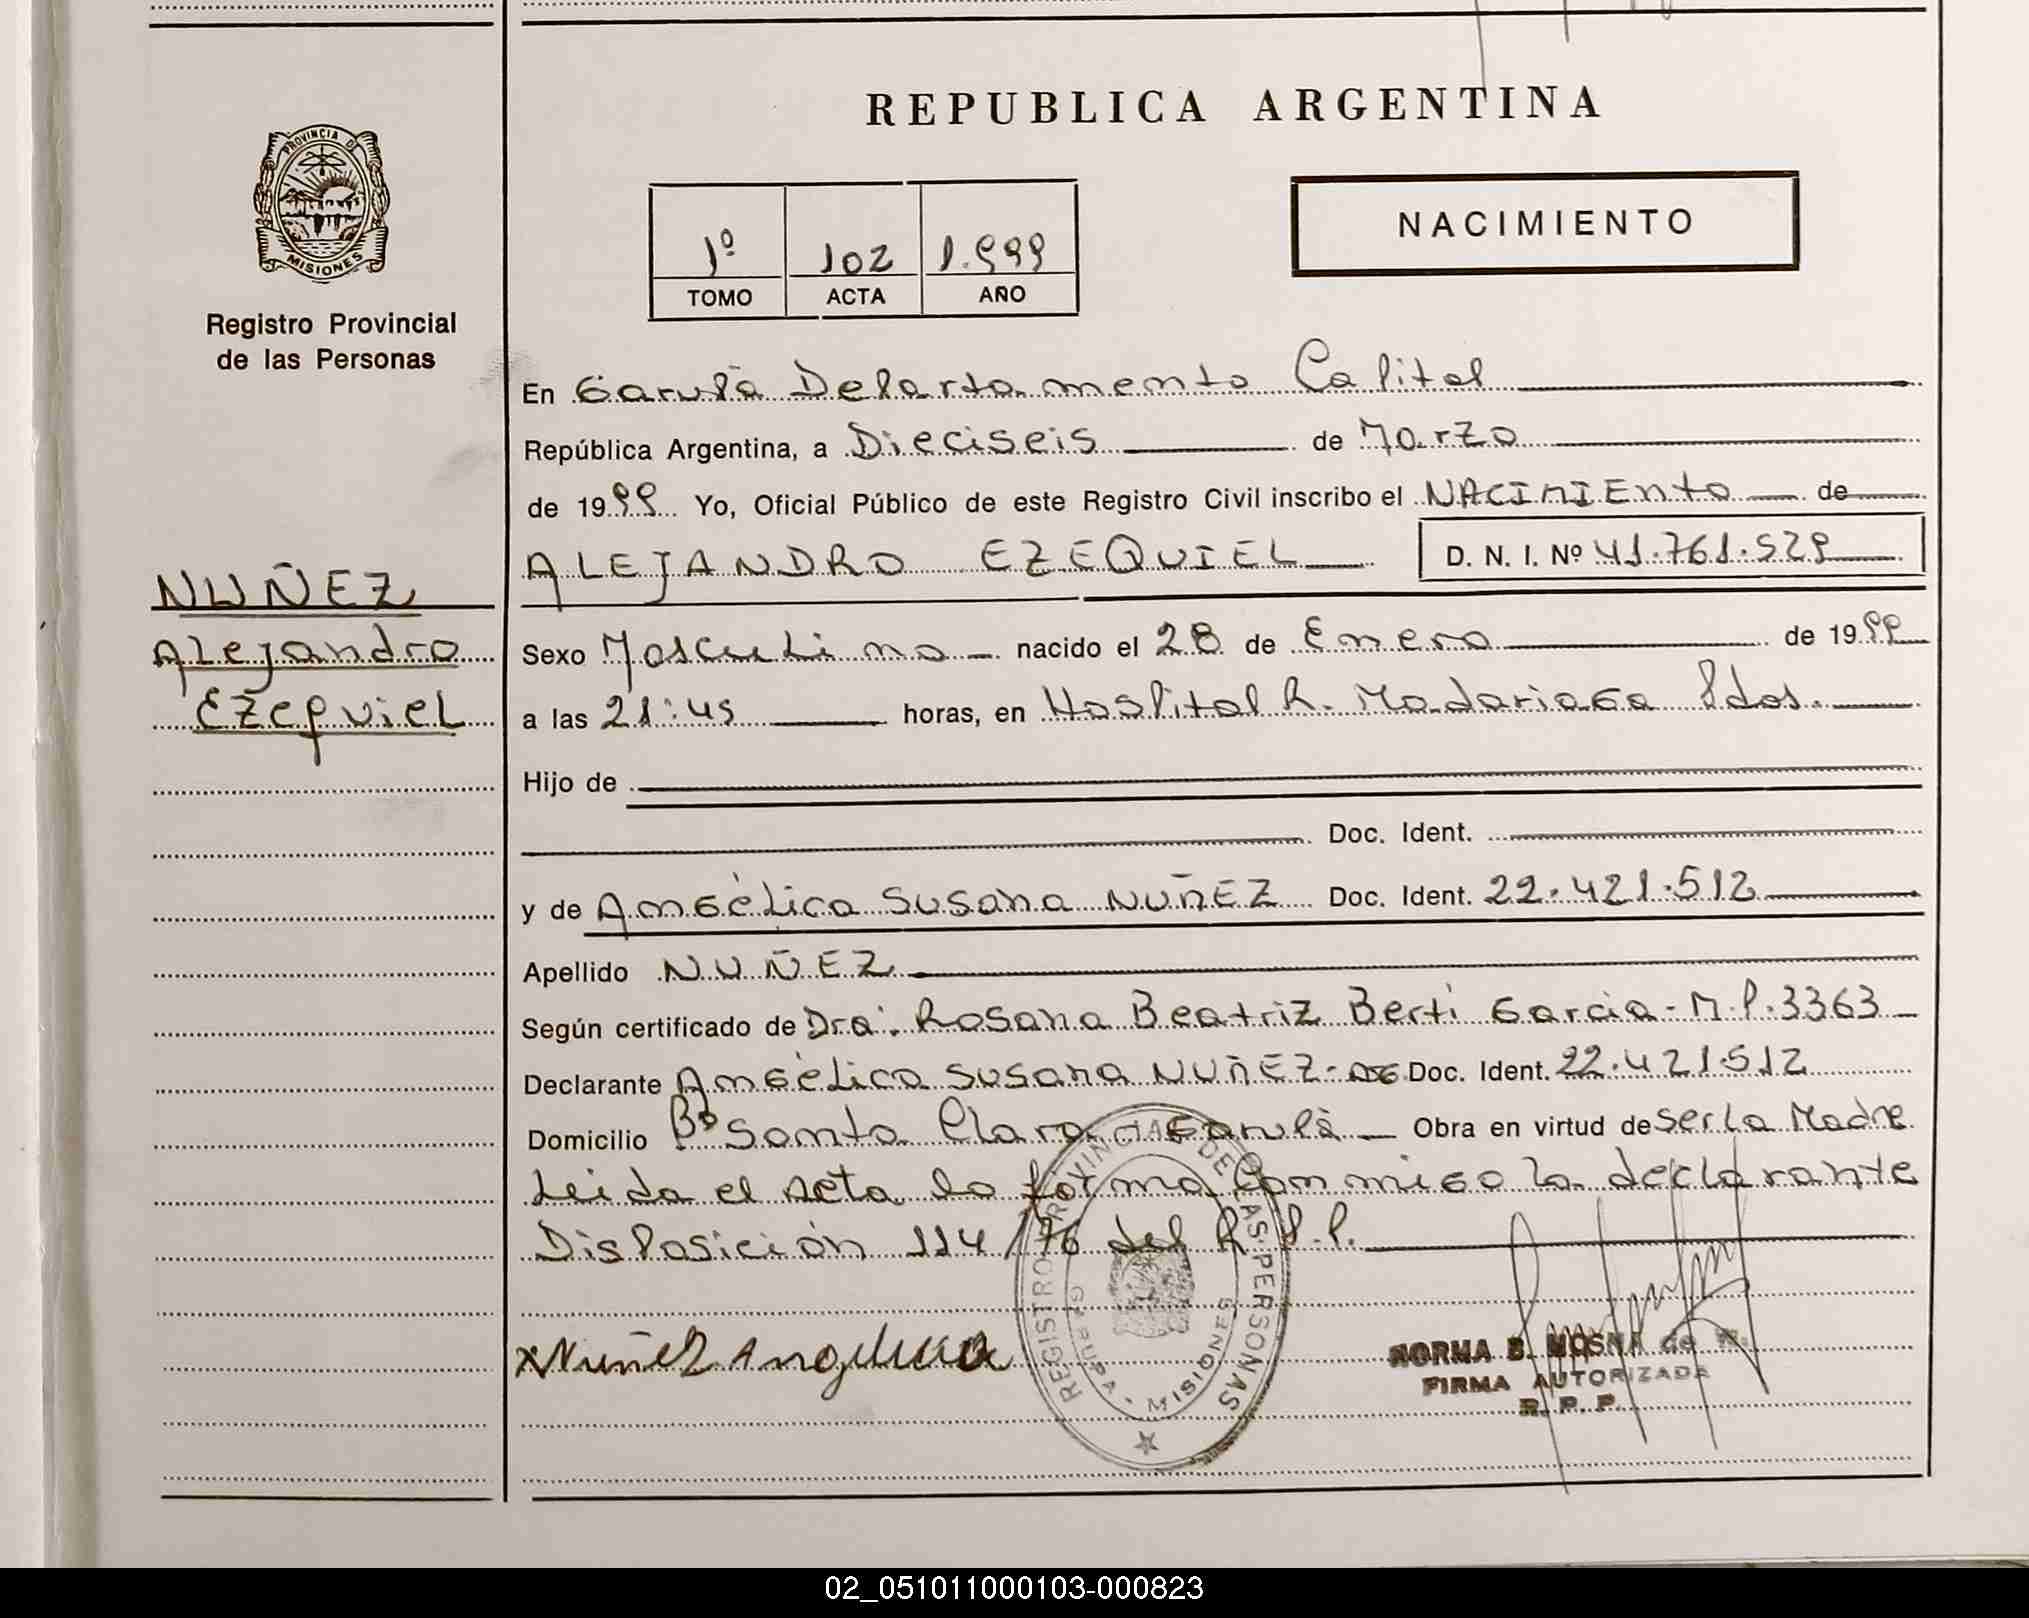 REPUBLICA ARGENTINA
PROVINCIA DE
MISIONES
Registro Provincial
de las Personas
NACIMIENTO
1º 102 1.999
TOMO ACTA AÑO
En Garupá Departamento Capital
República Argentina, a Dieciseis de Marzo
de 1999 Yo, Oficial Público de este Registro Civil inscribo el NACIMIENTO de
ALEJANDRO EZEQUIEL D. N. I. Nº 41.761.529
NUÑEZ
Alejandro
Ezequiel
Sexo Masculino nacido el 28 de Enero de 1999
a las 21:45 horas, en Hospital R. Madariaga Pdos.
Hijo de
Doc. Ident.
y de Angélica Susana NUÑEZ Doc. Ident. 22.421.512
Apellido NUÑEZ
Según certificado de Dra. Rosana Beatriz Berti Garcia - M.P. 3363
Declarante Angélica Susana NUÑEZ Doc. Ident. 22.421.512
Domicilio Bº Santa Clara Garupá Obra en virtud de ser la Madre
Leida el acta la forma conmigo la declarante
Disposición 114/76 del R.P.P.
REGISTRO PROVINCIAL DE LAS PERSONAS
GARUPA - MISIONES
x Nuñez Angelica
NORMA B. MOSNA de
FIRMA AUTORIZADA
R. P. P.
02_051011000103-000823